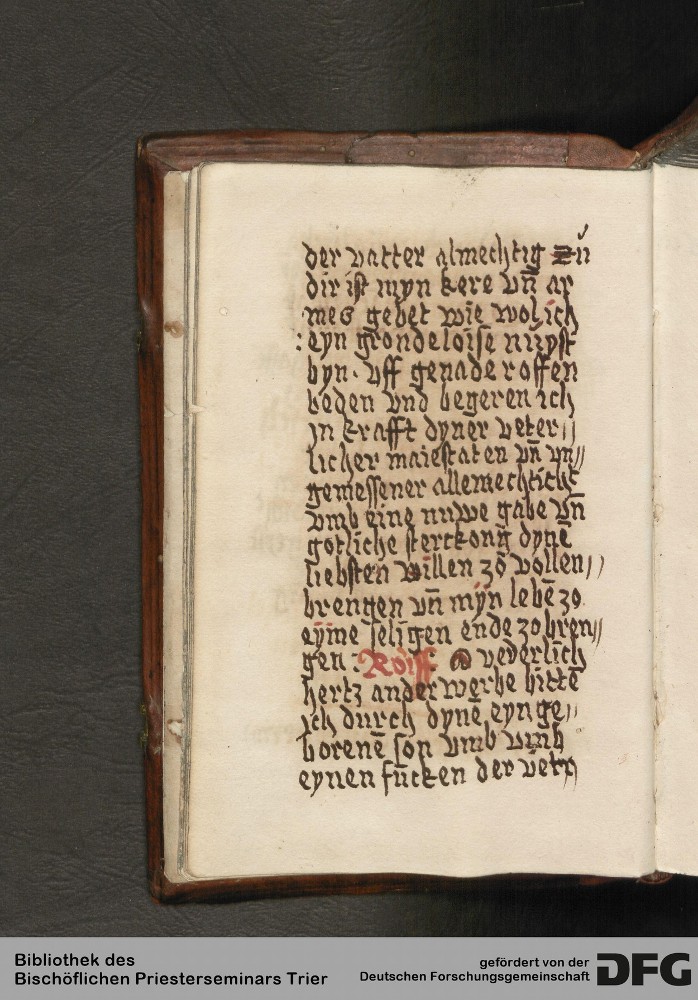 der vatter almechtig zů
dir ist myn kere vn̄ ar
mes gebet wie wol ich
: eyn grondeloise nuyst
byn · vff genade roffen
beden vnd begeren ich
jn krafft dyner veter〃
licher maiestaten vn̄ vn〃
gemessener allemechticht
vmb eine nuwe gabe vn̄
gotliche sterckong dynē
liebsten willen zo vollen〃
brengen vn̄ myn lebē zo
eyme seligen ende zo bren〃
gen : Roiff O vederlich
hertz anderwerbe bittē
ich durch dynē eynge〃
borenē son vmb
eynen fūcken der vetr
Bibliothek des
Bischöflichen Priesterseminars Trier
gefördert von der
Deutschen Forschungsgemeinschaft DFG